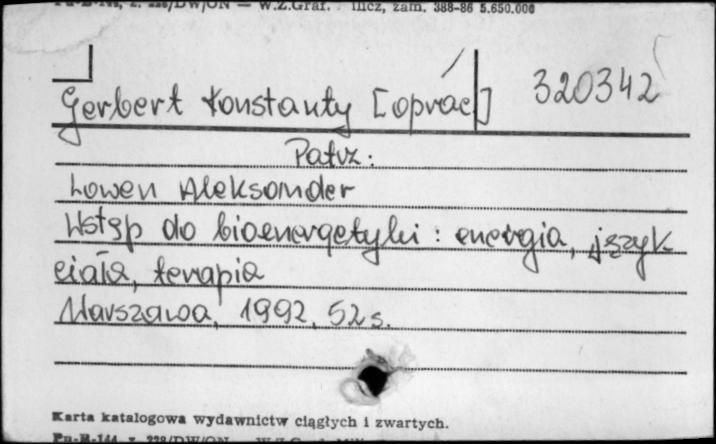 Pu-M-144, z. 228/DW/ON — W.Z.Graf. zam. 388-86 5.650.000
Gerbert Konstanty [oprac] 320342
Patrz:
Lowen Aleksander
Wstęp do bioenergetyki : energia, język
ciała, terapia
Warszawa, 1992, 52 s.
Karta katalogowa wydawnictw ciągłych i zwartych.
Pu-M-144, z. 228/DW/ON — W.Z.Graf.